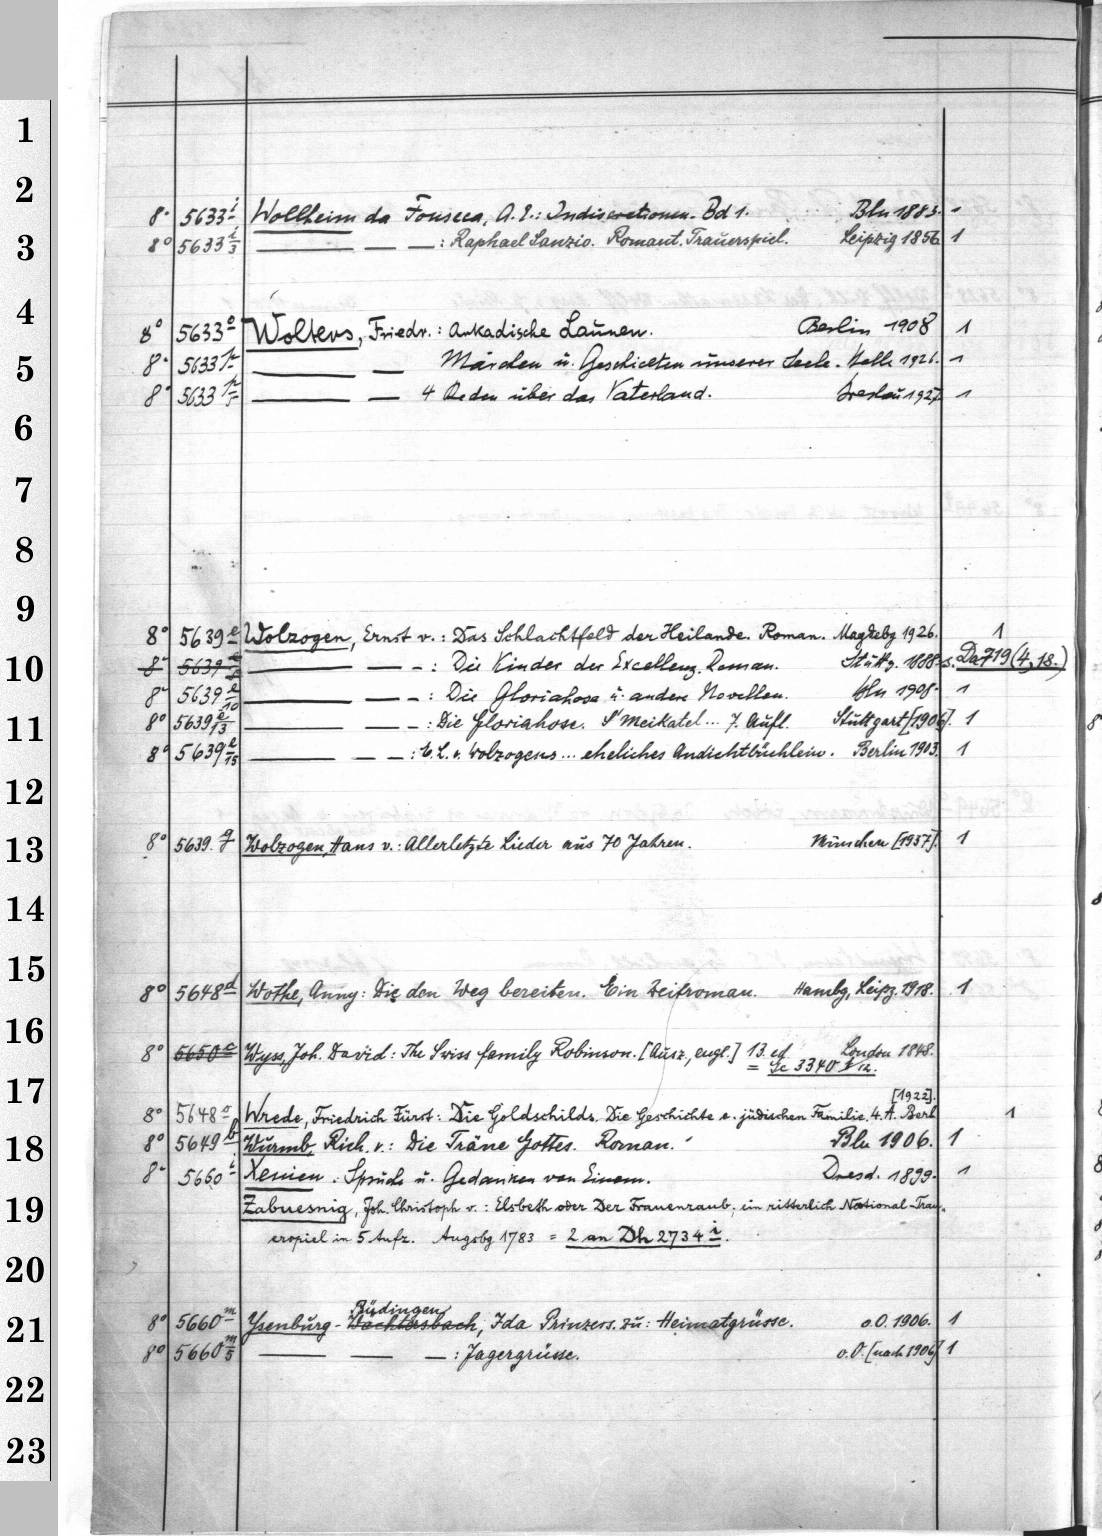 1
2
8° 5633 i Wollheim da Fonseca, A. E.: Indiscretionen. Bd 1. Bln 1883. 1
3 8° 5633 i/3 ——— — —: Raphael Sanzio. Romant. Trauerspiel. Leipzig 1856 1
4 8° 5633 o Wolters, Friedr.: Arkadische Launen. Berlin 1908 1
5 8° 5633 p ——— — Märchen u. Geschichten unserer Seele. 1926. 1
8° 5633 ——— — 4 Reden über das Vaterland. Breslau 1927. 1
6
7
8
9
8° 5639 e Wolzogen, Ernst v.: Das Schlachtfeld der Heilande. Roman. Magdebg 1926. 1
10 8° 5639 ——— — –: Die Kinder der Excellenz. Roman. Stuttg. 1888 s. Da 719 (4,18.)
8° 5639 e/10 ——— — –: Die Gloriahose u. andere Novellen. Bln 1908. 1
11 8° 5639 e/13 ——— — –: Die Gloriahose. S'Meikatel... 7. Aufl. Stuttgart [1906]. 1
8° 5639 e/15 ——— — —: E. L. v. Wolzogens ... eheliches Andichtbüchlein. Berlin 1903. 1
12
13 8° 5639. g Wolzogen, Hans v.: Allerletzte Lieder aus 70 Jahren. München [1937]. 1
14
15
8° 5648 d Wothe, Anny: Die den Weg bereiten. Ein Zeitroman. Hambg, Leipz. 1918. 1
16
8° 5650 c Wyss, Joh. David: The Swiss family Robinson. [Ausz., engl.] 13. ed London 1848.
= 3340
17 [1922].
8° 5648 Wrede, Friedrich Fürst: Die Goldschilds. Die Geschichte e. jüdischen Familie. 4. A. Berl 1
18 8° 5649 b Wurmb, Rich. v.: Die Träne Gottes. Roman. Bln 1906. 1
8° 5660 i Xenien: Sprüche u. Gedanken von Einem. Dresd. 1899. 1
19 Zabuesnig, Joh. Christoph v.: Elsbeth oder Der Frauenraub, ein ritterlich National-Trau-
erspiel in 5 Aufz. Augsbg 1783 = 2 an Dh 2734 i.
20
Büdingen
21 8° 5660 m Ysenburg-Wächtersbach, Ida Prinzess. zu: Heimatgrüsse. o.O. 1906. 1
8° 5660 m/5 ——— — —: Jagergrüsse. o.O. [nach 1906] 1
22
23